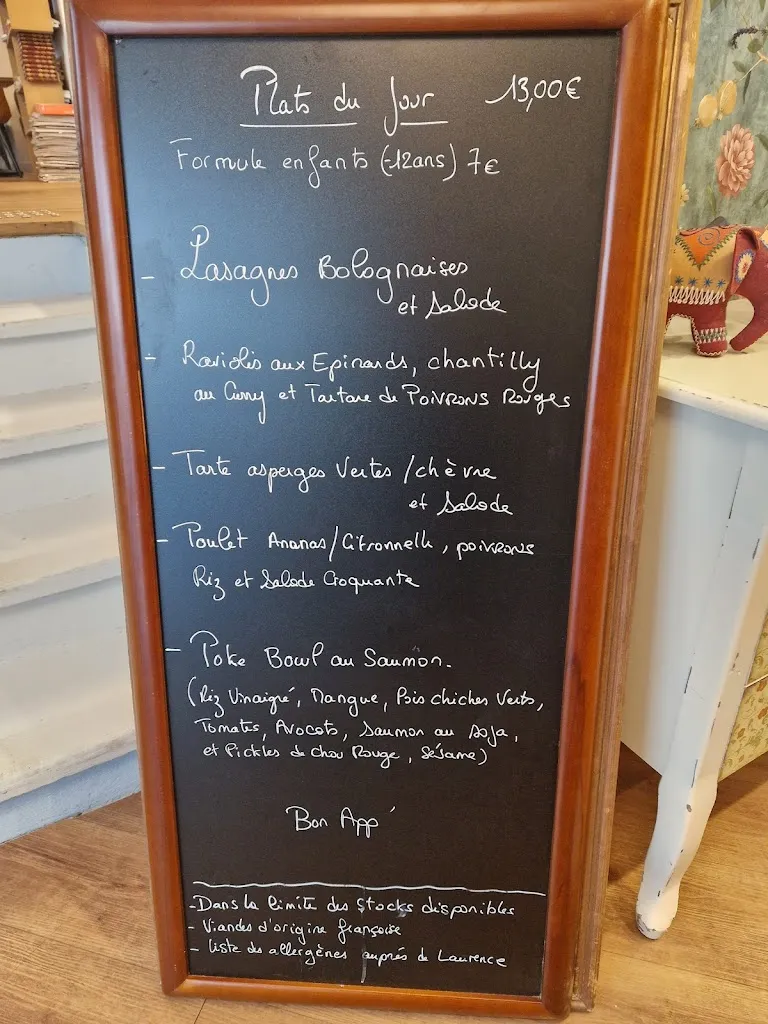 Plats du Jour 13,00€
Formule enfants (-12ans) 7€
- Lasagnes Bolognaises
et Salade
- Raviolis aux Epinards, chantilly
au Curry et Tartare de Poivrons Rouges
- Tarte asperges Vertes / chèvre
et Salade
- Poulet Ananas / Citronnelle, poivrons
Riz et Salade Croquante
- Poke Bowl au Saumon.
(Riz Vinaigré, Mangue, Pois chiches Verts,
Tomates, Avocats, Saumon au soja,
et Pickles de Chou Rouge, Sésame)
Bon App'
- Dans la limite des Stocks disponibles
- Viandes d'origine française
- liste des allergènes auprès de Laurence